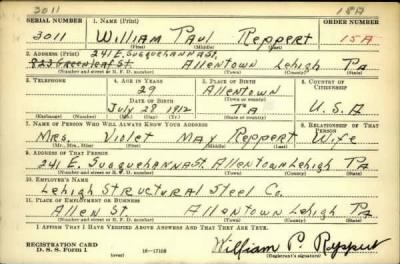 3011 18A
SERIAL NUMBER 1. NAME (Print) ORDER NUMBER
3011 William Paul Reppert 15A
(First) (Middle) (Last)
2. ADDRESS (Print) 241 E. Susquehanna St.
823 Greenleaf St. Allentown Lehigh Pa
(Number and street or R. F. D. number) (Town) (County) (State)
3. TELEPHONE 4. AGE IN YEARS 5. PLACE OF BIRTH 6. COUNTRY OF CITIZENSHIP
29 Allentown
DATE OF BIRTH (Town or county)
July 28 1912 Pa U.S.A
(Exchange) (Number) (Mo.) (Day) (Yr.) (State or country)
7. NAME OF PERSON WHO WILL ALWAYS KNOW YOUR ADDRESS 8. RELATIONSHIP OF THAT PERSON
Mrs. Violet May Reppert Wife
(Mr., Mrs., Miss) (First) (Middle) (Last)
9. ADDRESS OF THAT PERSON
241 E. Susquehanna St. Allentown Lehigh Pa
(Number and street or R. F. D. number) (Town) (County) (State)
10. EMPLOYER'S NAME
Lehigh Structural Steel Co.
11. PLACE OF EMPLOYMENT OR BUSINESS
Allen St Allentown Lehigh Pa
(Number and street or R. F. D. number) (Town) (County) (State)
I AFFIRM THAT I HAVE VERIFIED ABOVE ANSWERS AND THAT THEY ARE TRUE.
REGISTRATION CARD
D. S. S. Form 1 16—17105 William P. Reppert
(Registrant's signature)